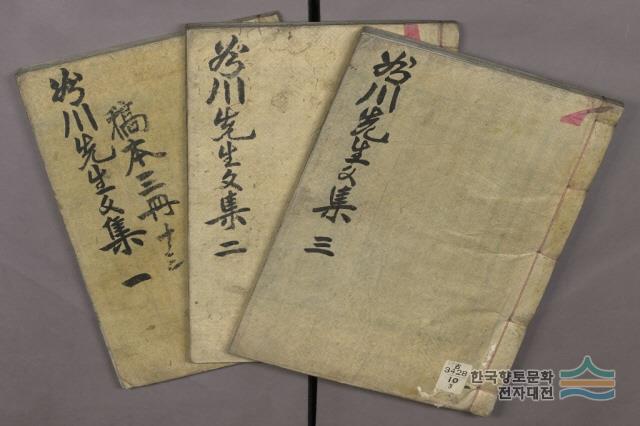 川先生文集 一
稿本三冊
川先生文集 二
川先生文集 三
3428
10
3
한국향토문화
전자대전